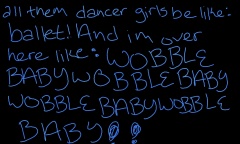 all them dancer girls be like:
ballet! And im over
here like: WOBBLE
BABY WOBBLE BABY
WOBBLE BABY WOBBLE
BABY!!